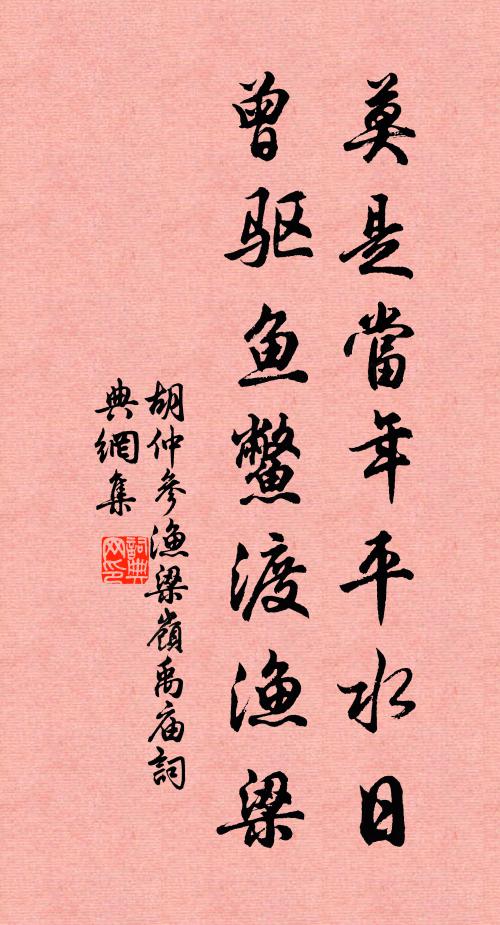 莫是當年平水日
曾驱鱼鱉渡渔梁
胡仲參渔梁嶺禹庙詞
典網集
詞典
网印